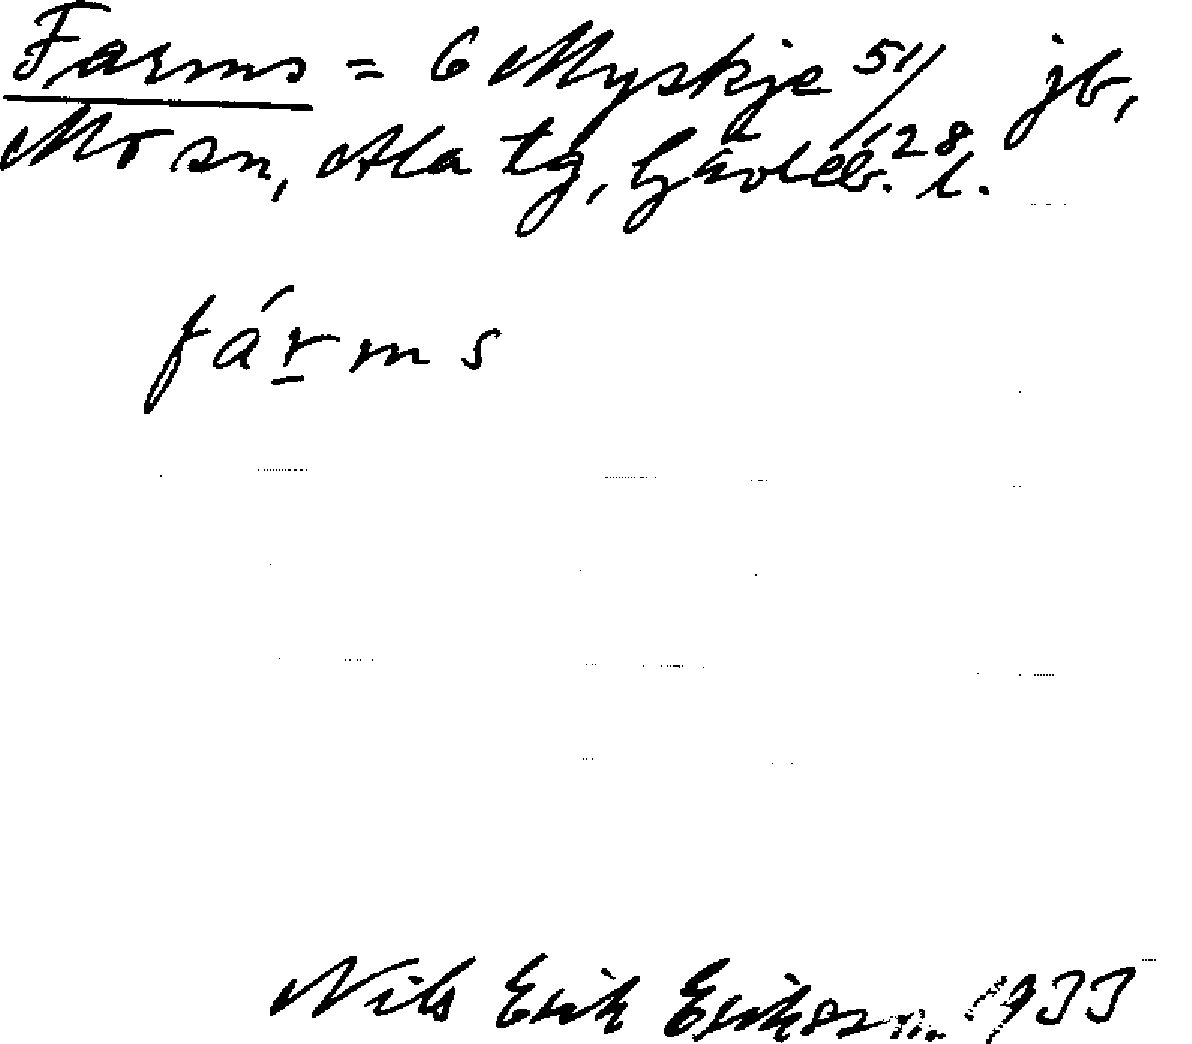 Farms = 6 Myskje 51/128 jb,
Mo sn, Ala tg, Gävleb. l.
fárms
Nils Erik Eriksson. 1933